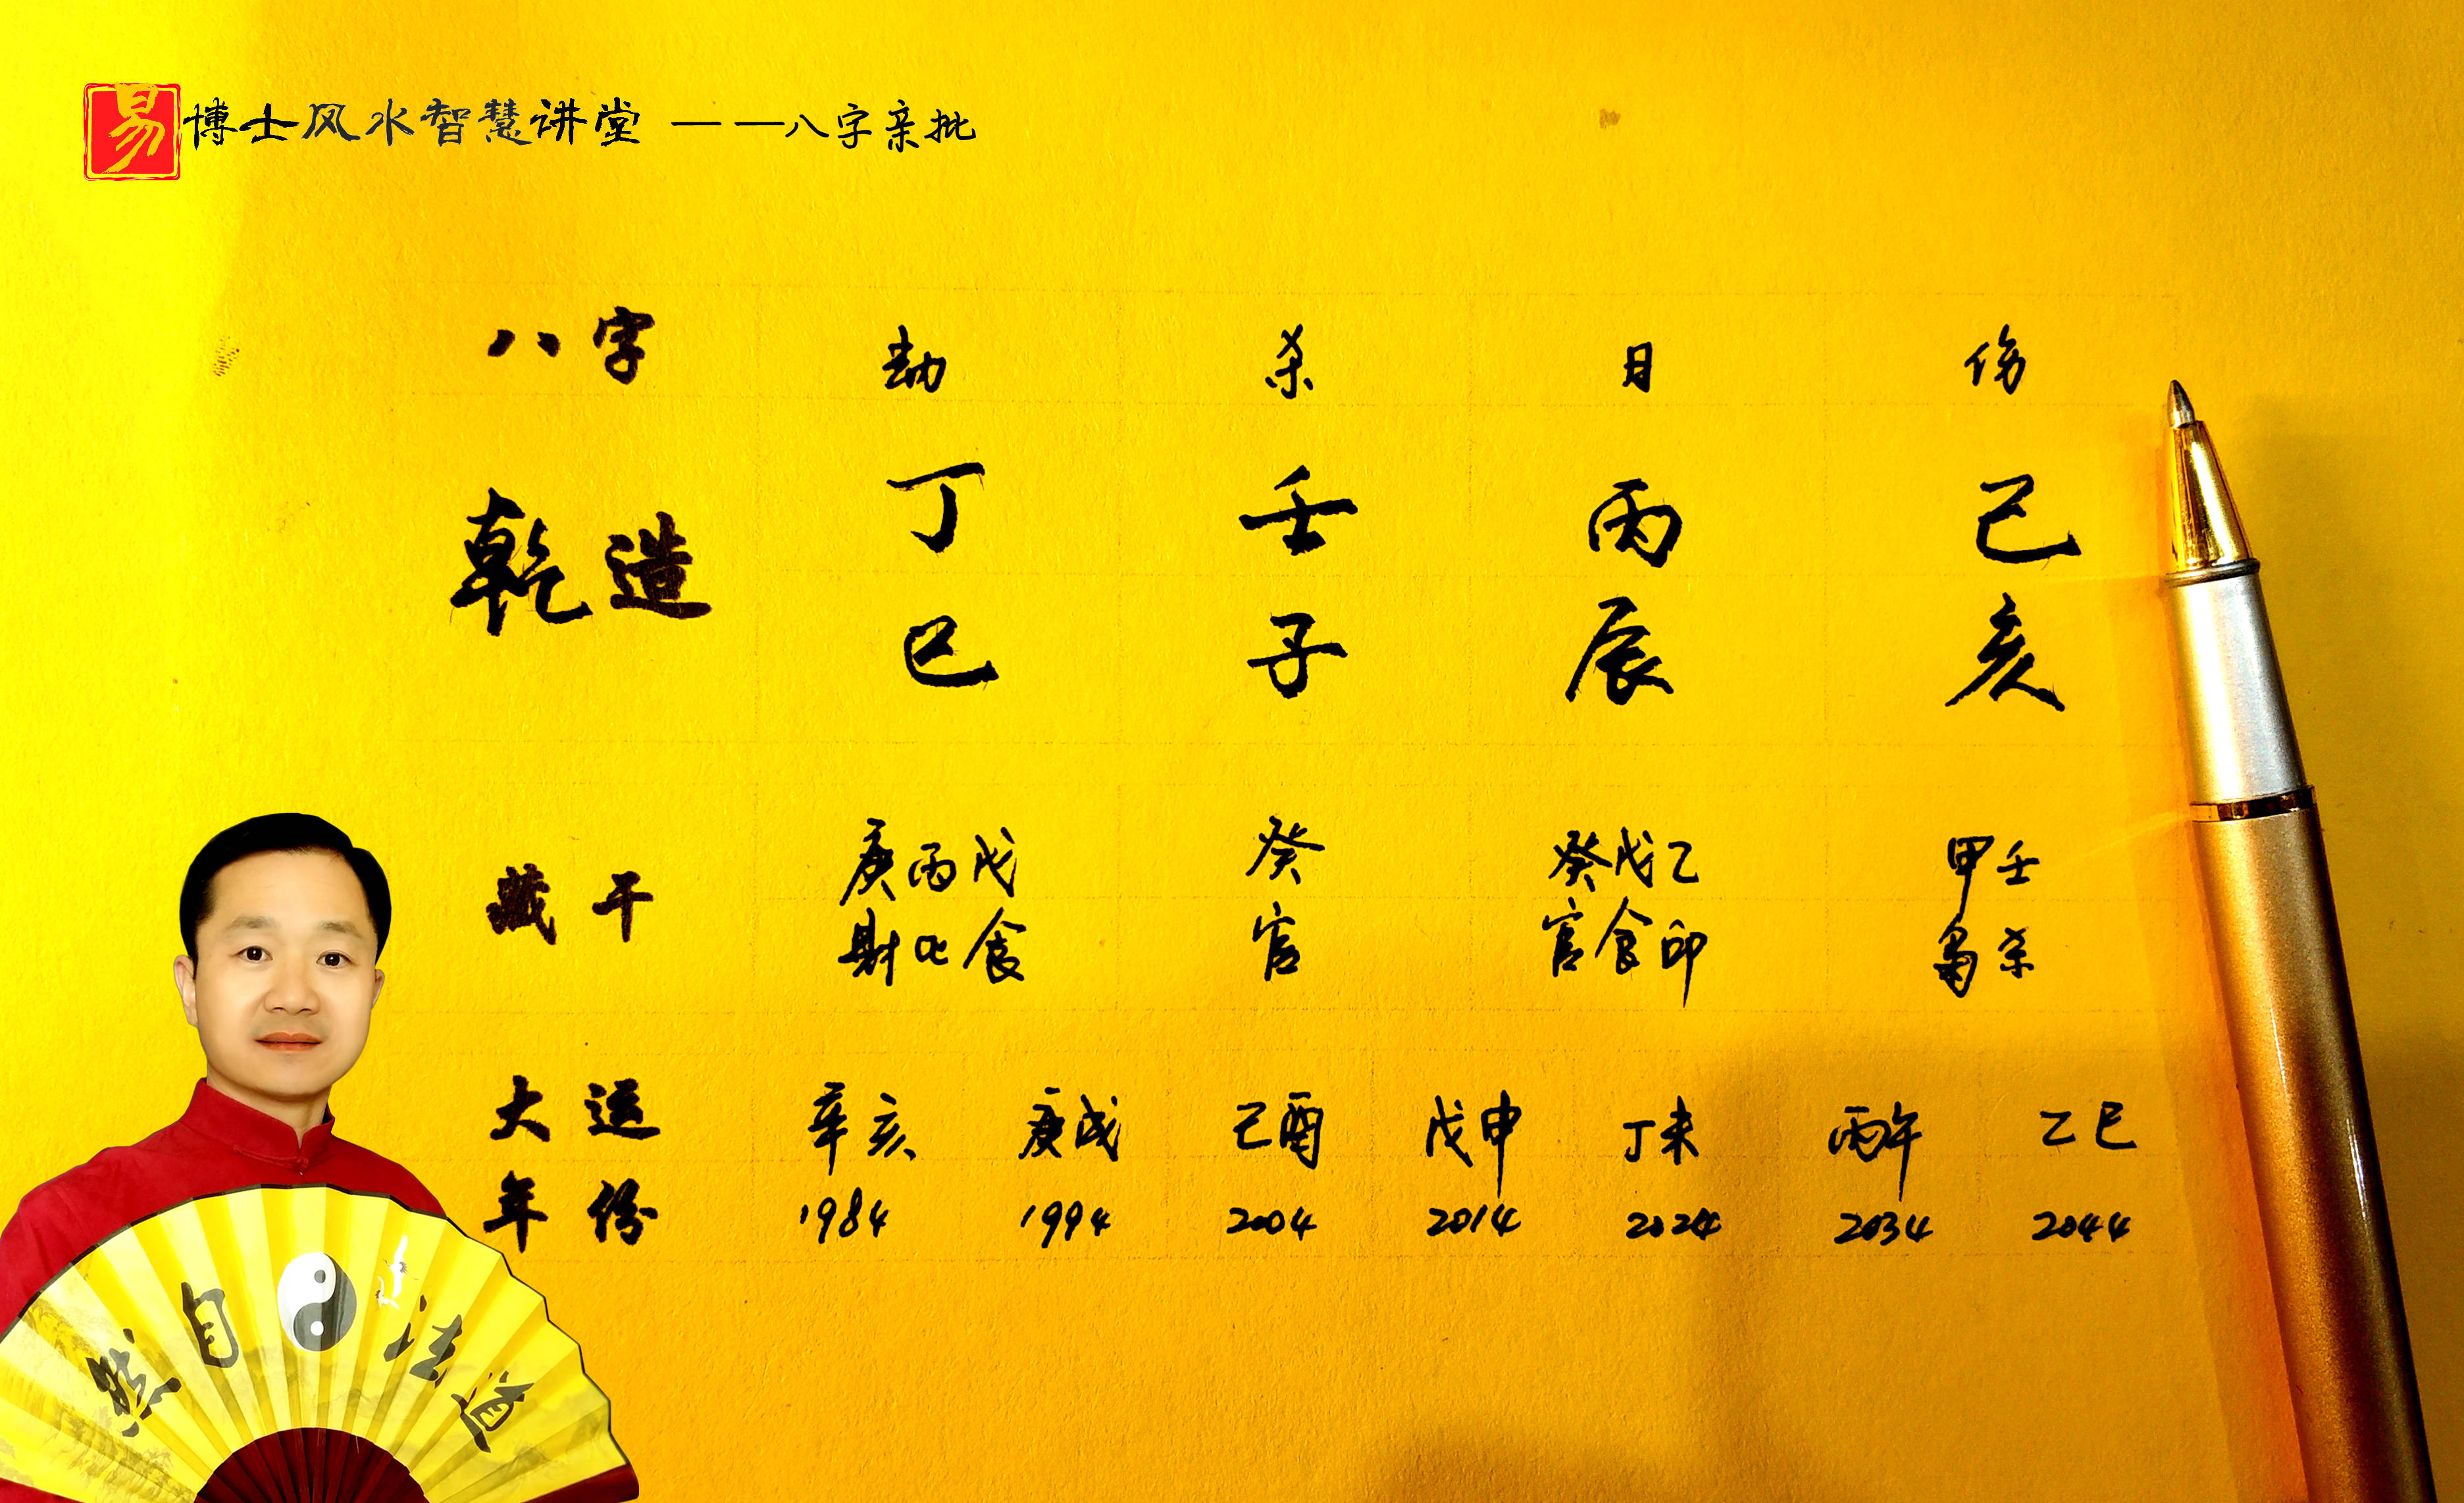 易博士风水智慧讲堂 ——八字亲批
八字 劫 杀 日 伤
乾造 丁 壬 丙 己
巳 子 辰 亥
藏干 庚丙戊 癸 癸戊乙 甲壬
财比食 官 官食印 枭杀
大运 辛亥 庚戌 己酉 戊申 丁未 丙午 乙巳
年份 1984 1994 2004 2014 2024 2034 2044
然自法道